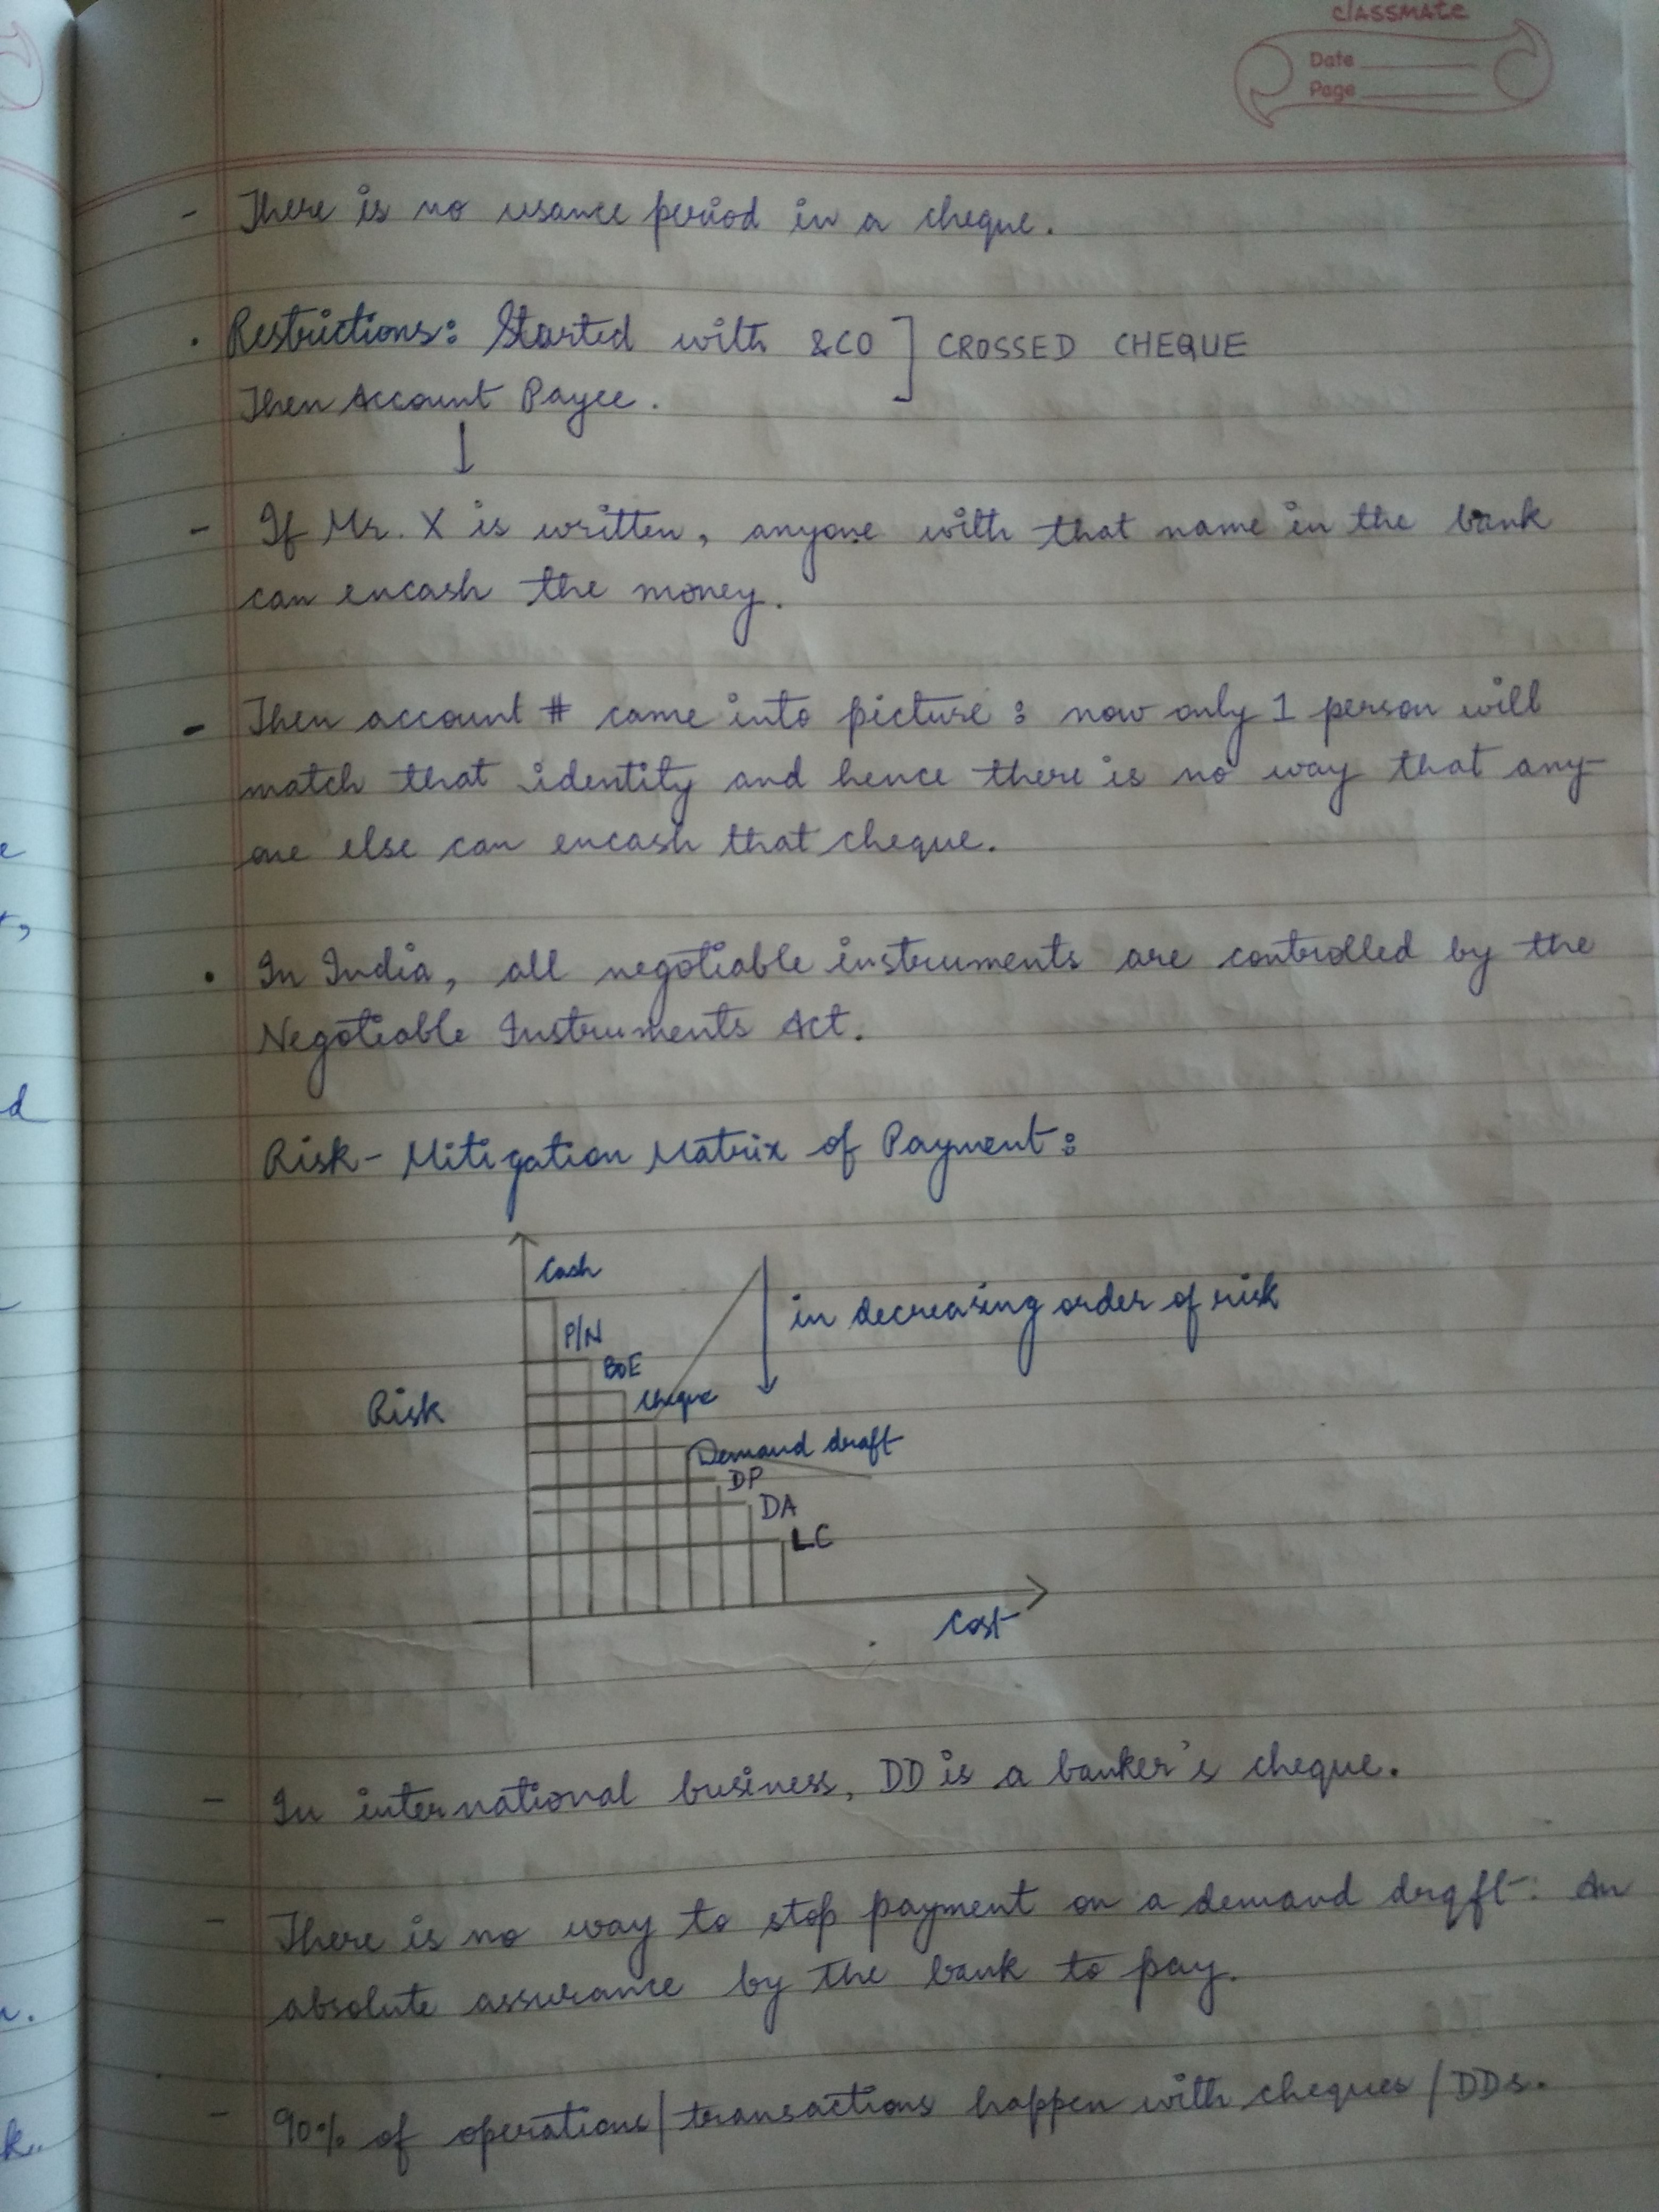 classmate
Date
Page
- There is no usance period in a cheque.
. Restrictions: Started with &CO ] CROSSED CHEQUE
Then Account Payee.
↓
- If Mr. X is written, anyone with that name in the bank
can encash the money.
- Then account # came into picture : now only 1 person will
match that identity and hence there is no way that any-
one else can encash that cheque.
• In India, all negotiable instruments are controlled by the
Negotiable Instruments Act.
Risk-Mitigation Matrix of Payment:
Cash
in decreasing order of risk
P/N
BoE
Cheque
Risk
Demand draft
DP
DA
LC
Cost
- In international business, DD is a banker's cheque.
- There is no way to stop payment on a demand draft: An
absolute assurance by the bank to pay.
- 90% of operations/transactions happen with cheques/DDs.